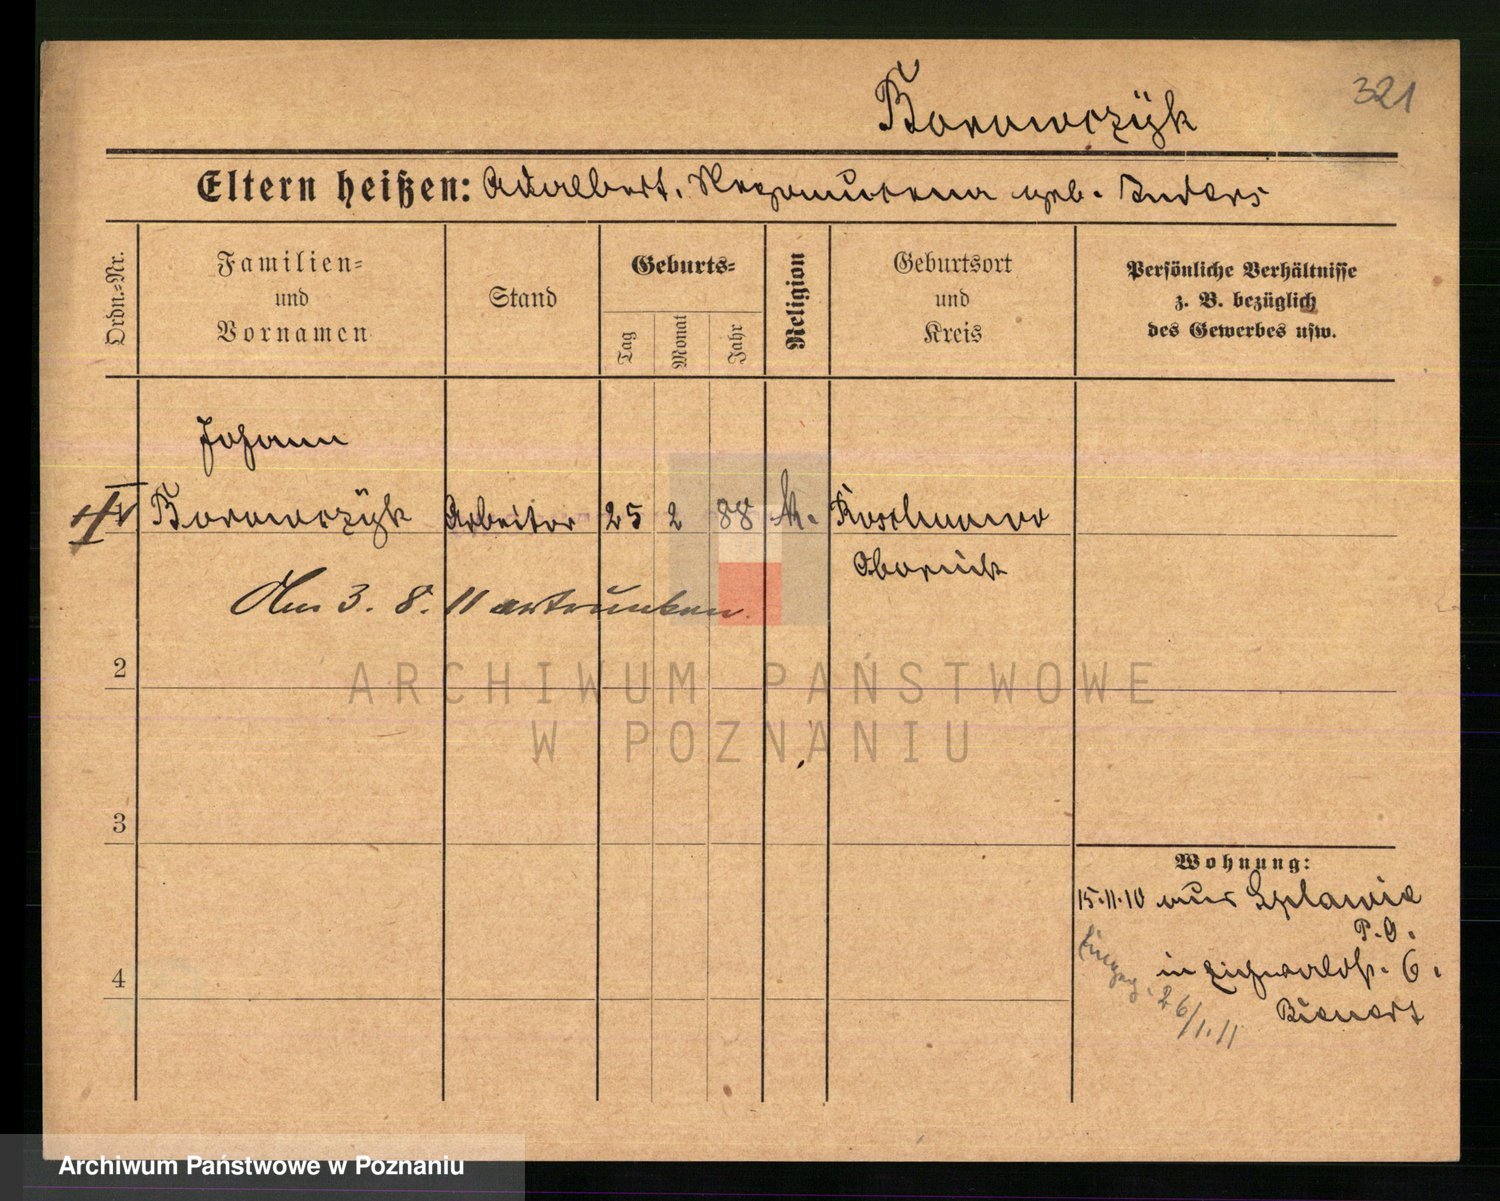 321
Borowczÿk
Eltern heißen: Adalbert, Nepomucena geb. Enders
Ordn.=Nr.
Familien=
und
Vornamen
Stand
Geburts=
Tag
Monat
Jahr
Religion
Geburtsort
und
Kreis
Persönliche Verhältnisse
z. B. bezüglich
des Gewerbes usw.
Johann
Borowczÿk Arbeiter 25 2 88 k. Koschanowo
Obornick
Am 3. 8. 11 ertrunken.
2
3
4
Wohnung:
15.11.10 aus
P.O.
in Eichwaldst. 6.
Bienert
26/1.11
ARCHIWUM PAŃSTWOWE
W POZNANIU
Archiwum Państwowe w Poznaniu